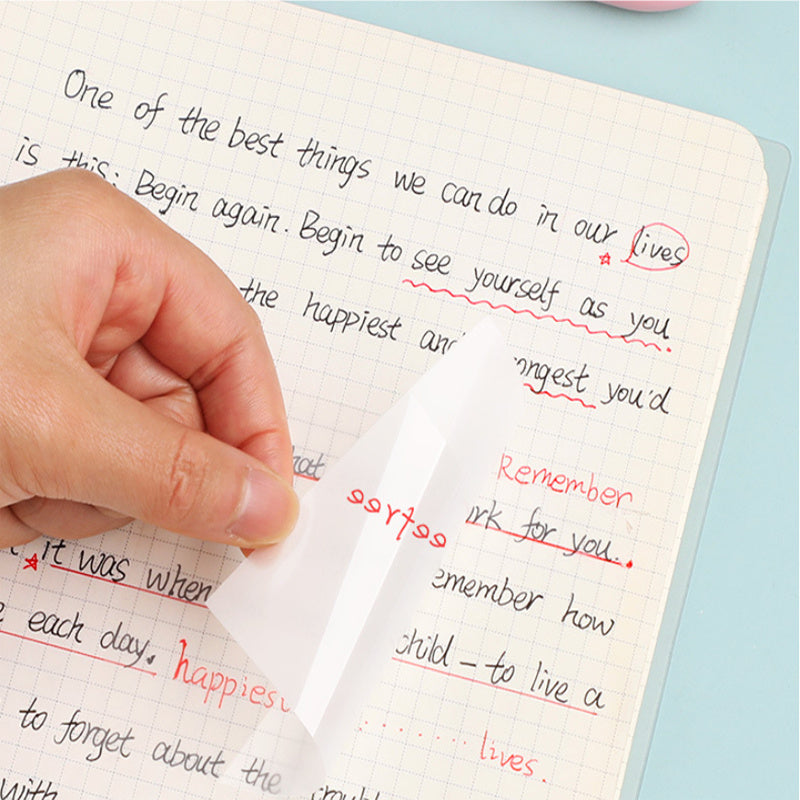 One of the best things we can do in our lives
is this: Begin again. Begin to see yourself as you
the happiest and you'd
Remember
for you.
it was when emember how
each day. happies child – to live a
lives.
to forget about the
with